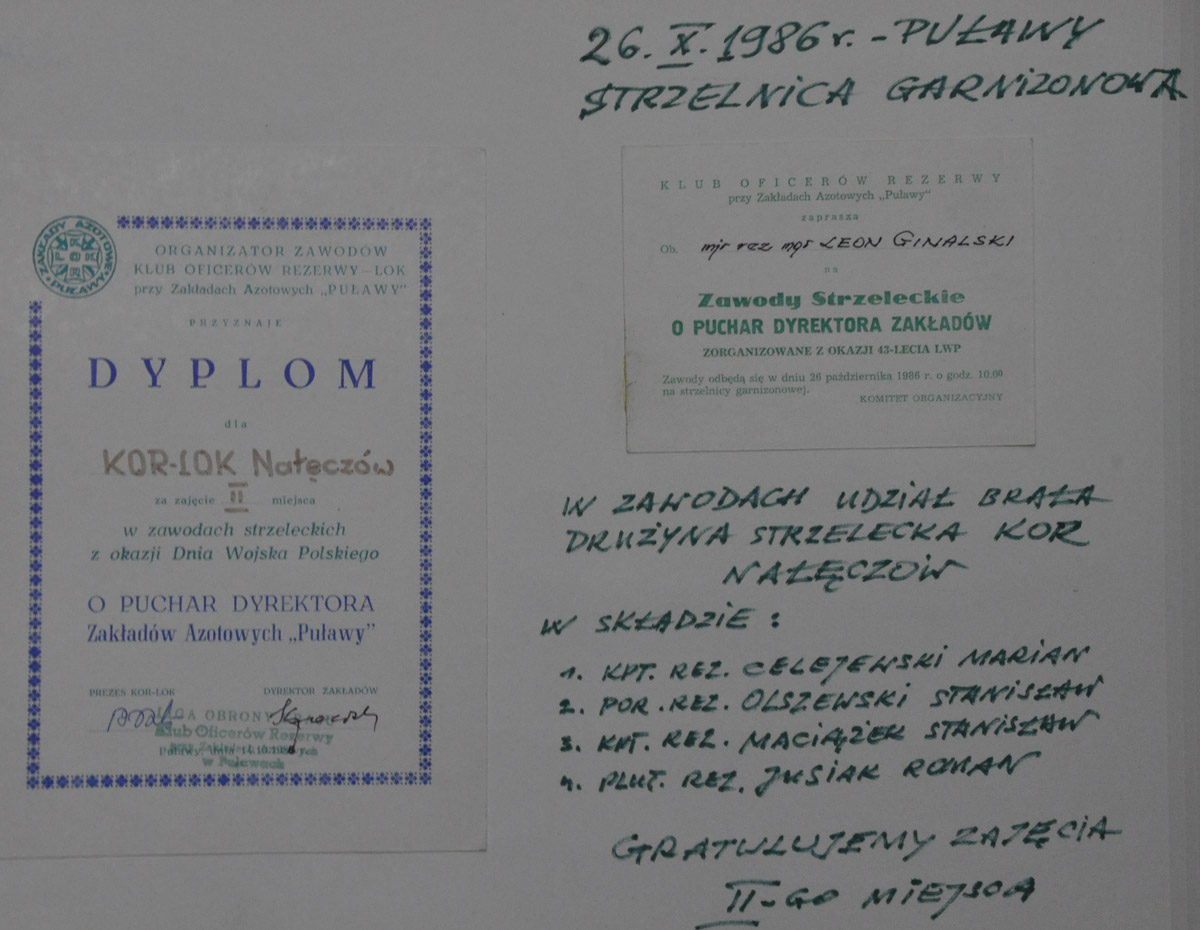 26.X.1986r. - PUŁAWY
STRZELNICA GARNIZONOWA
ZAKŁADY AZOTOWE
PUŁAWY
ORGANIZATOR ZAWODÓW
KLUB OFICERÓW REZERWY – LOK
przy Zakładach Azotowych „PUŁAWY"
PRZYZNAJE
DYPLOM
dla
KOR-LOK Nałęczów
za zajęcie II miejsca
w zawodach strzeleckich
z okazji Dnia Wojska Polskiego
O PUCHAR DYREKTORA
Zakładów Azotowych „Puławy"
PREZES KOR-LOK DYREKTOR ZAKŁADÓW
LIGA OBRONY
Klub Oficerów Rezerwy
Puławy, dnia
w Puławach
KLUB OFICERÓW REZERWY
przy Zakładach Azotowych „Puławy"
zaprasza
Ob. mjr rez mgr LEON GINALSKI
na
Zawody Strzeleckie
O PUCHAR DYREKTORA ZAKŁADÓW
ZORGANIZOWANE Z OKAZJI 43-LECIA LWP
Zawody odbędą się w dniu 26 października 1986 r. o godz. 10.00
na strzelnicy garnizonowej.
KOMITET ORGANIZACYJNY
W ZAWODACH UDZIAŁ BRAŁA
DRUŻYNA STRZELECKA KOR
NAŁĘCZÓW
W SKŁADZIE :
1. KPT. REZ. CELEJEWSKI MARIAN
2. POR. REZ. OLSZEWSKI STANISŁAW
3. KPT. REZ. MACIĄŻEK STANISŁAW
4. PLUT. REZ. JUSIAK ROMAN
GRATULUJEMY ZAJĘCIA
II-GO MIEJSCA